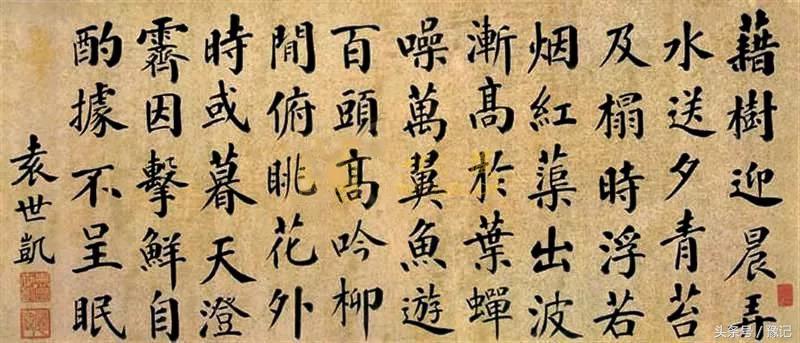 藉樹迎晨弄
水送夕青苔
及榻時浮若
烟紅蕖出波
漸髙於葉蟬
噪萬翼魚遊
百頭髙吟柳
閒俯眺花外
時或暮天澄
霽因擊鮮自
酌據不呈眠
袁世凱
头条号 / 豫记